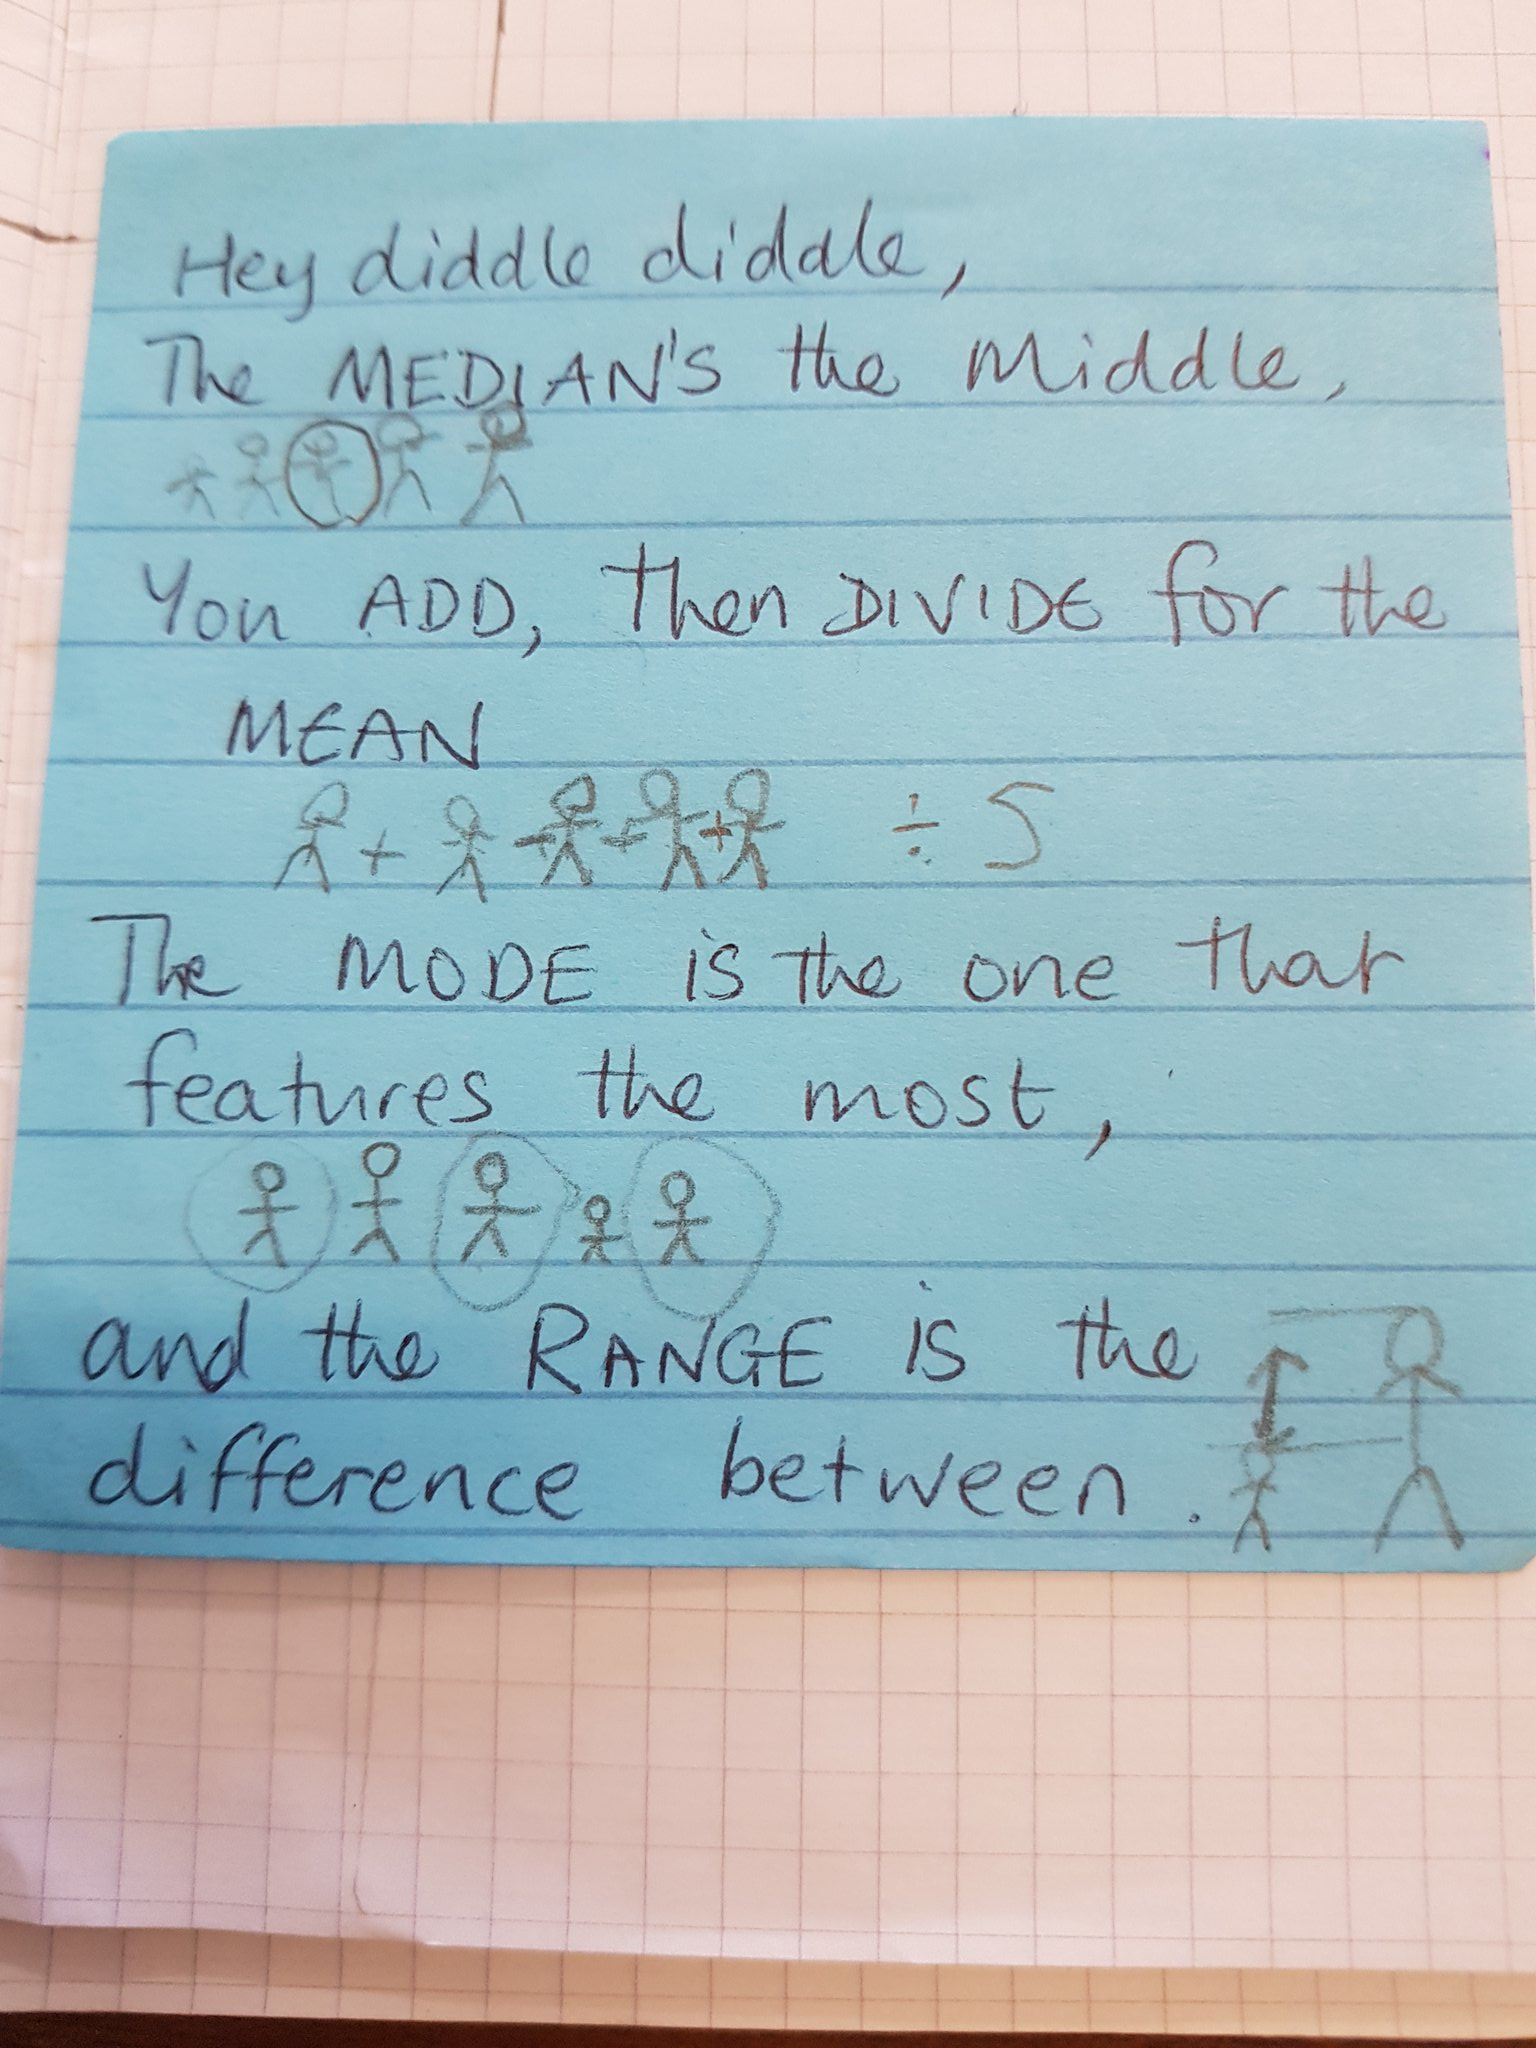 Hey diddle diddle,
The MEDIAN'S the Middle,
You ADD, then DIVIDE for the
MEAN
+ + + + ÷ 5
The MODE is the one that
features the most,
and the RANGE is the
difference between.